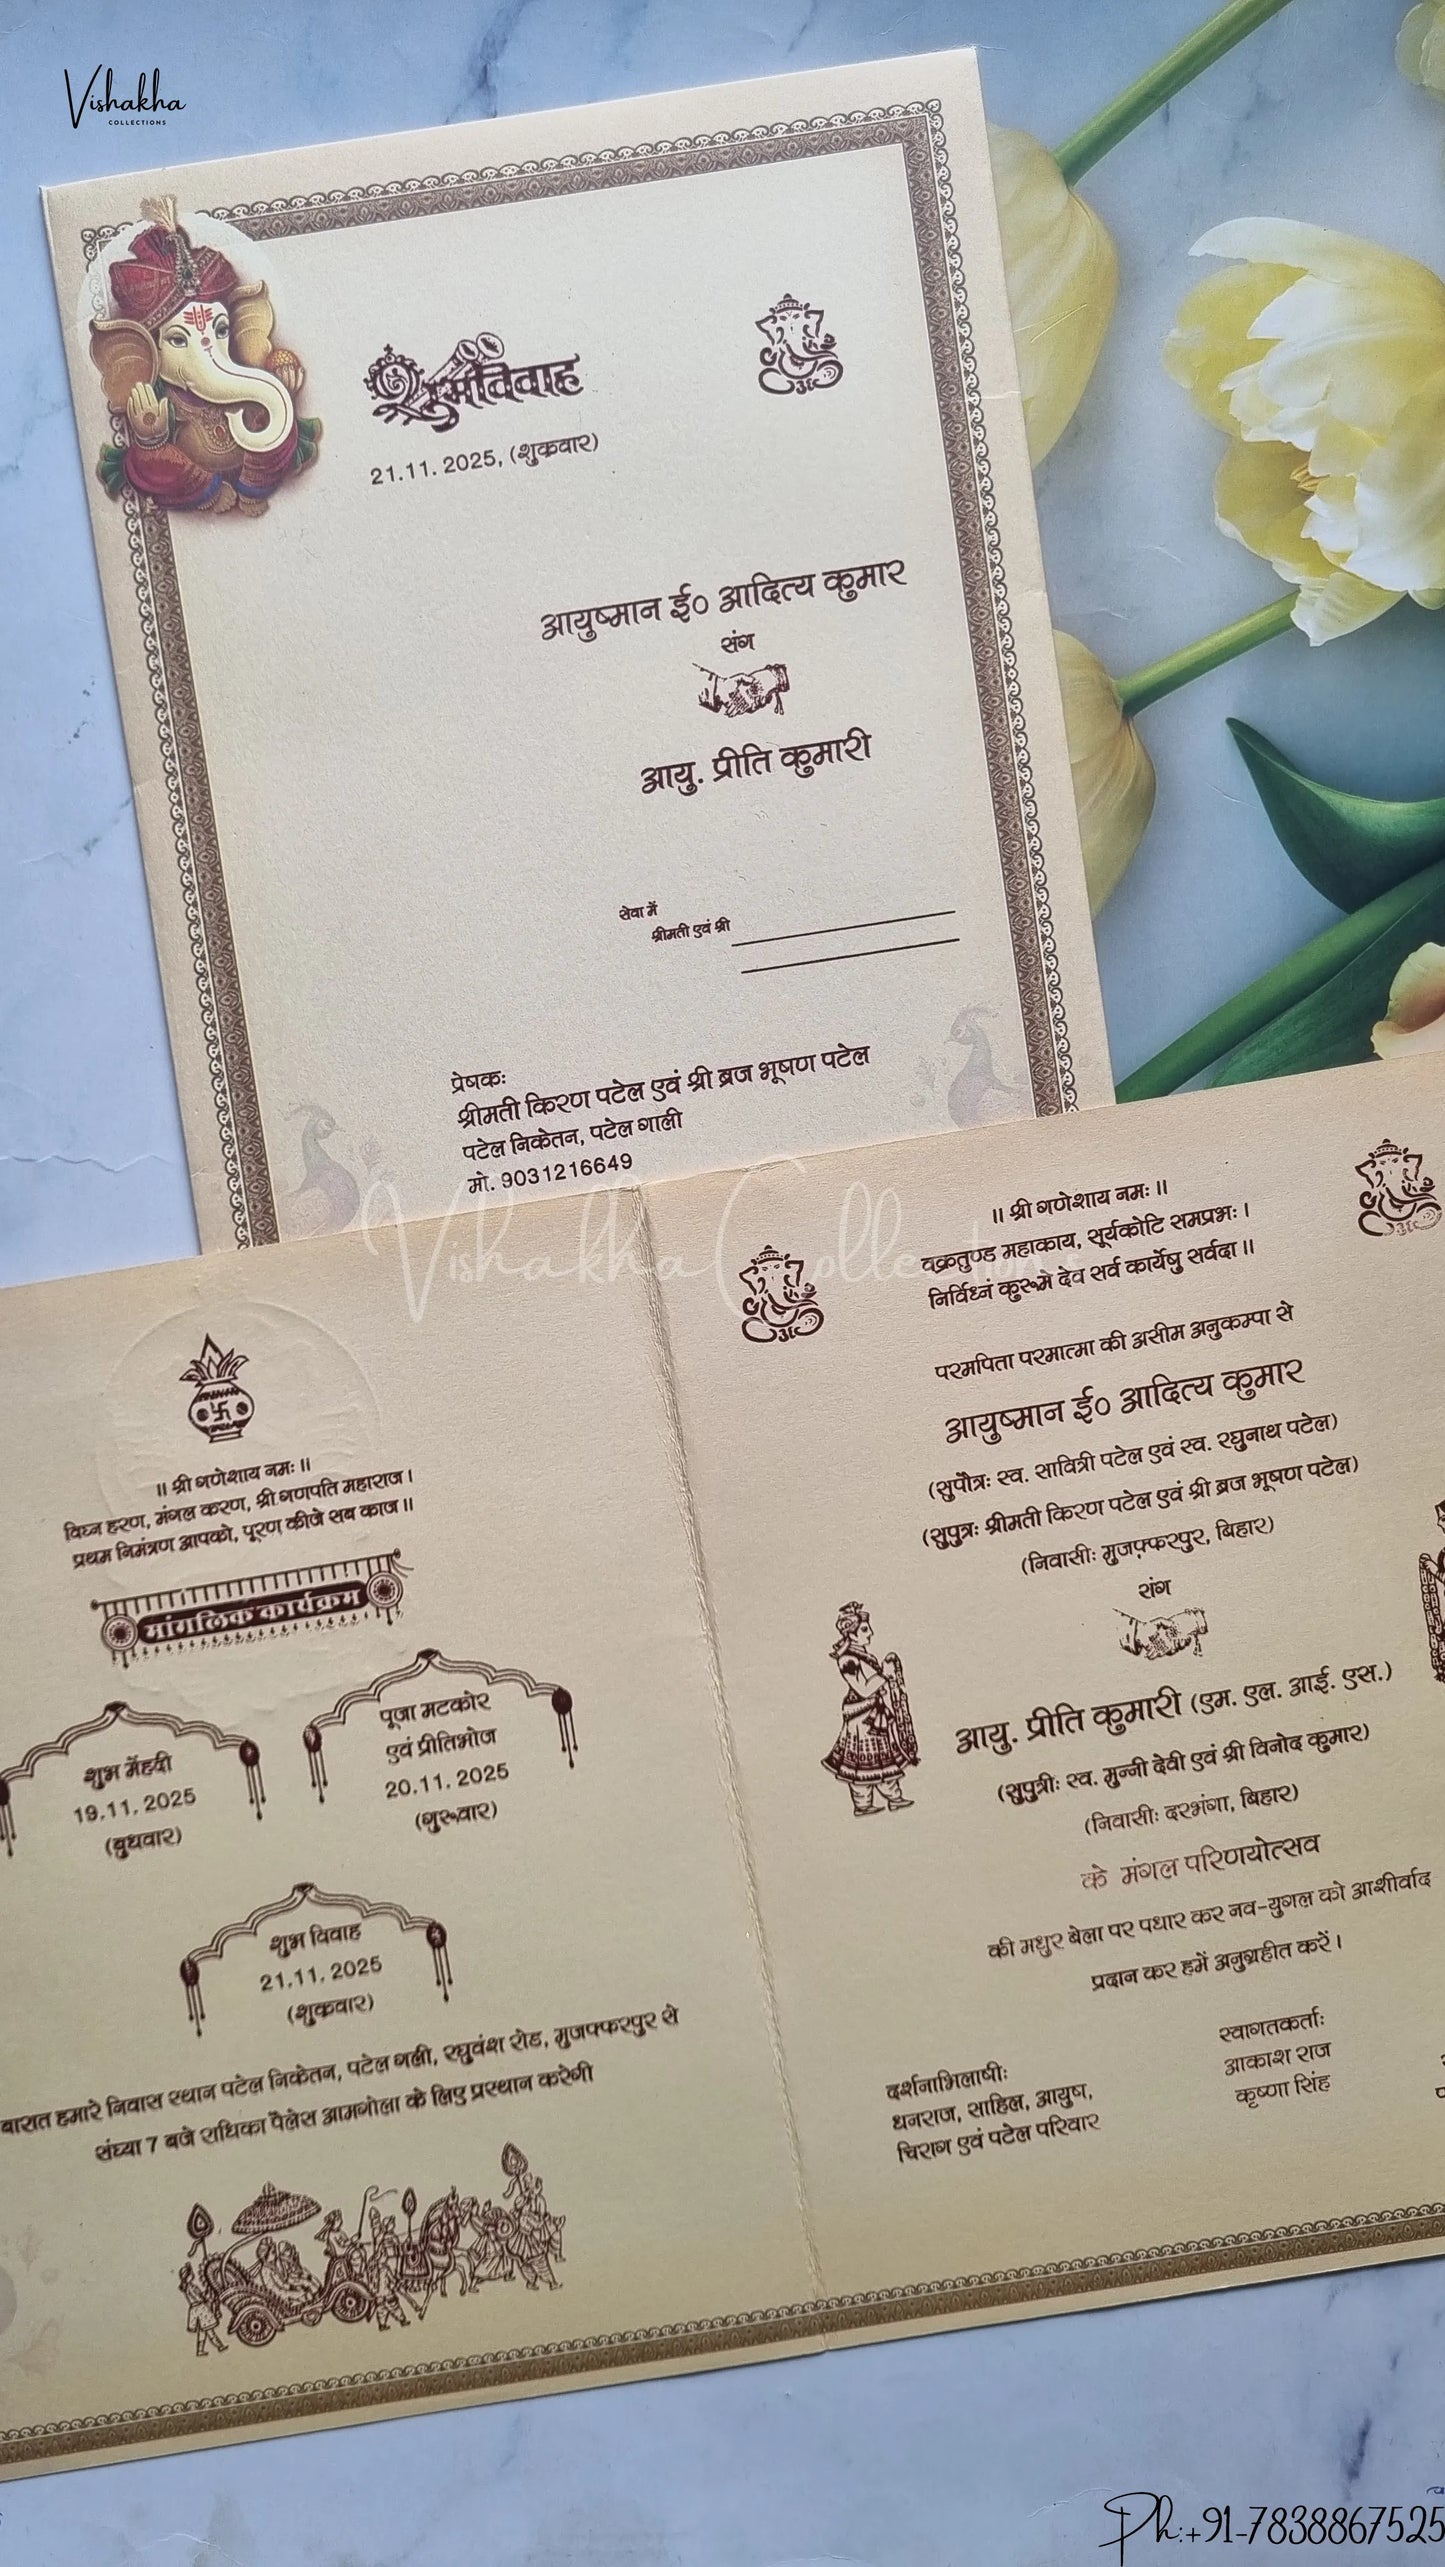 Vishakha
COLLECTIONS
शुभ विवाह
21.11. 2025, (शुक्रवार)
आयुष्मान ई० आदित्य कुमार
संग
आयु. प्रीति कुमारी
सेवा में
श्रीमती एवं श्री
प्रेषकः
श्रीमती किरण पटेल एवं श्री ब्रज भूषण पटेल
पटेल निकेतन, पटेल गाली
मो. 9031216649
Vishakha Collections
॥ श्री गणेशाय नमः ॥
विघ्न हरण, मंगल करण, श्री गणपति महाराज ।
प्रथम निमंत्रण आपको, पूरण कीजे सब काज ॥
मांगलिक कार्यक्रम
शुभ मेंहदी
19.11. 2025
(बुधवार)
पूजा मटकोर
एवं प्रीतिभोज
20.11. 2025
(गुरूवार)
शुभ विवाह
21.11. 2025
(शुक्रवार)
बारात हमारे निवास स्थान पटेल निकेतन, पटेल गली, रघुवंश रोड, मुजफ्फरपुर से
संध्या 7 बजे राधिका पैलेस आमगोला के लिए प्रस्थान करेगी
॥ श्री गणेशाय नमः ॥
वक्रतुण्ड महाकाय, सूर्यकोटि समप्रभः ।
निर्विध्नं कुरूमे देव सर्व कार्येषु सर्वदा ॥
परमपिता परमात्मा की असीम अनुकम्पा से
आयुष्मान ई० आदित्य कुमार
(सुपौत्रः स्व. सावित्री पटेल एवं स्व. रघुनाथ पटेल)
(सुपुत्रः श्रीमती किरण पटेल एवं श्री ब्रज भूषण पटेल)
(निवासीः मुजफ़्फरपुर, बिहार)
संग
आयु. प्रीति कुमारी (एम. एल. आई. एस.)
(सुपुत्रीः स्व. मुन्नी देवी एवं श्री विनोद कुमार)
(निवासीः दरभंगा, बिहार)
के मंगल परिणयोत्सव
की मधुर बेला पर पधार कर नव-युगल को आशीर्वाद
प्रदान कर हमें अनुग्रहीत करें ।
दर्शनाभिलाषीः
धनराज, साहिल, आयुष,
चिराग एवं पटेल परिवार
स्वागतकर्ताः
आकाश राज
कृष्णा सिंह
Ph:+91-7838867525